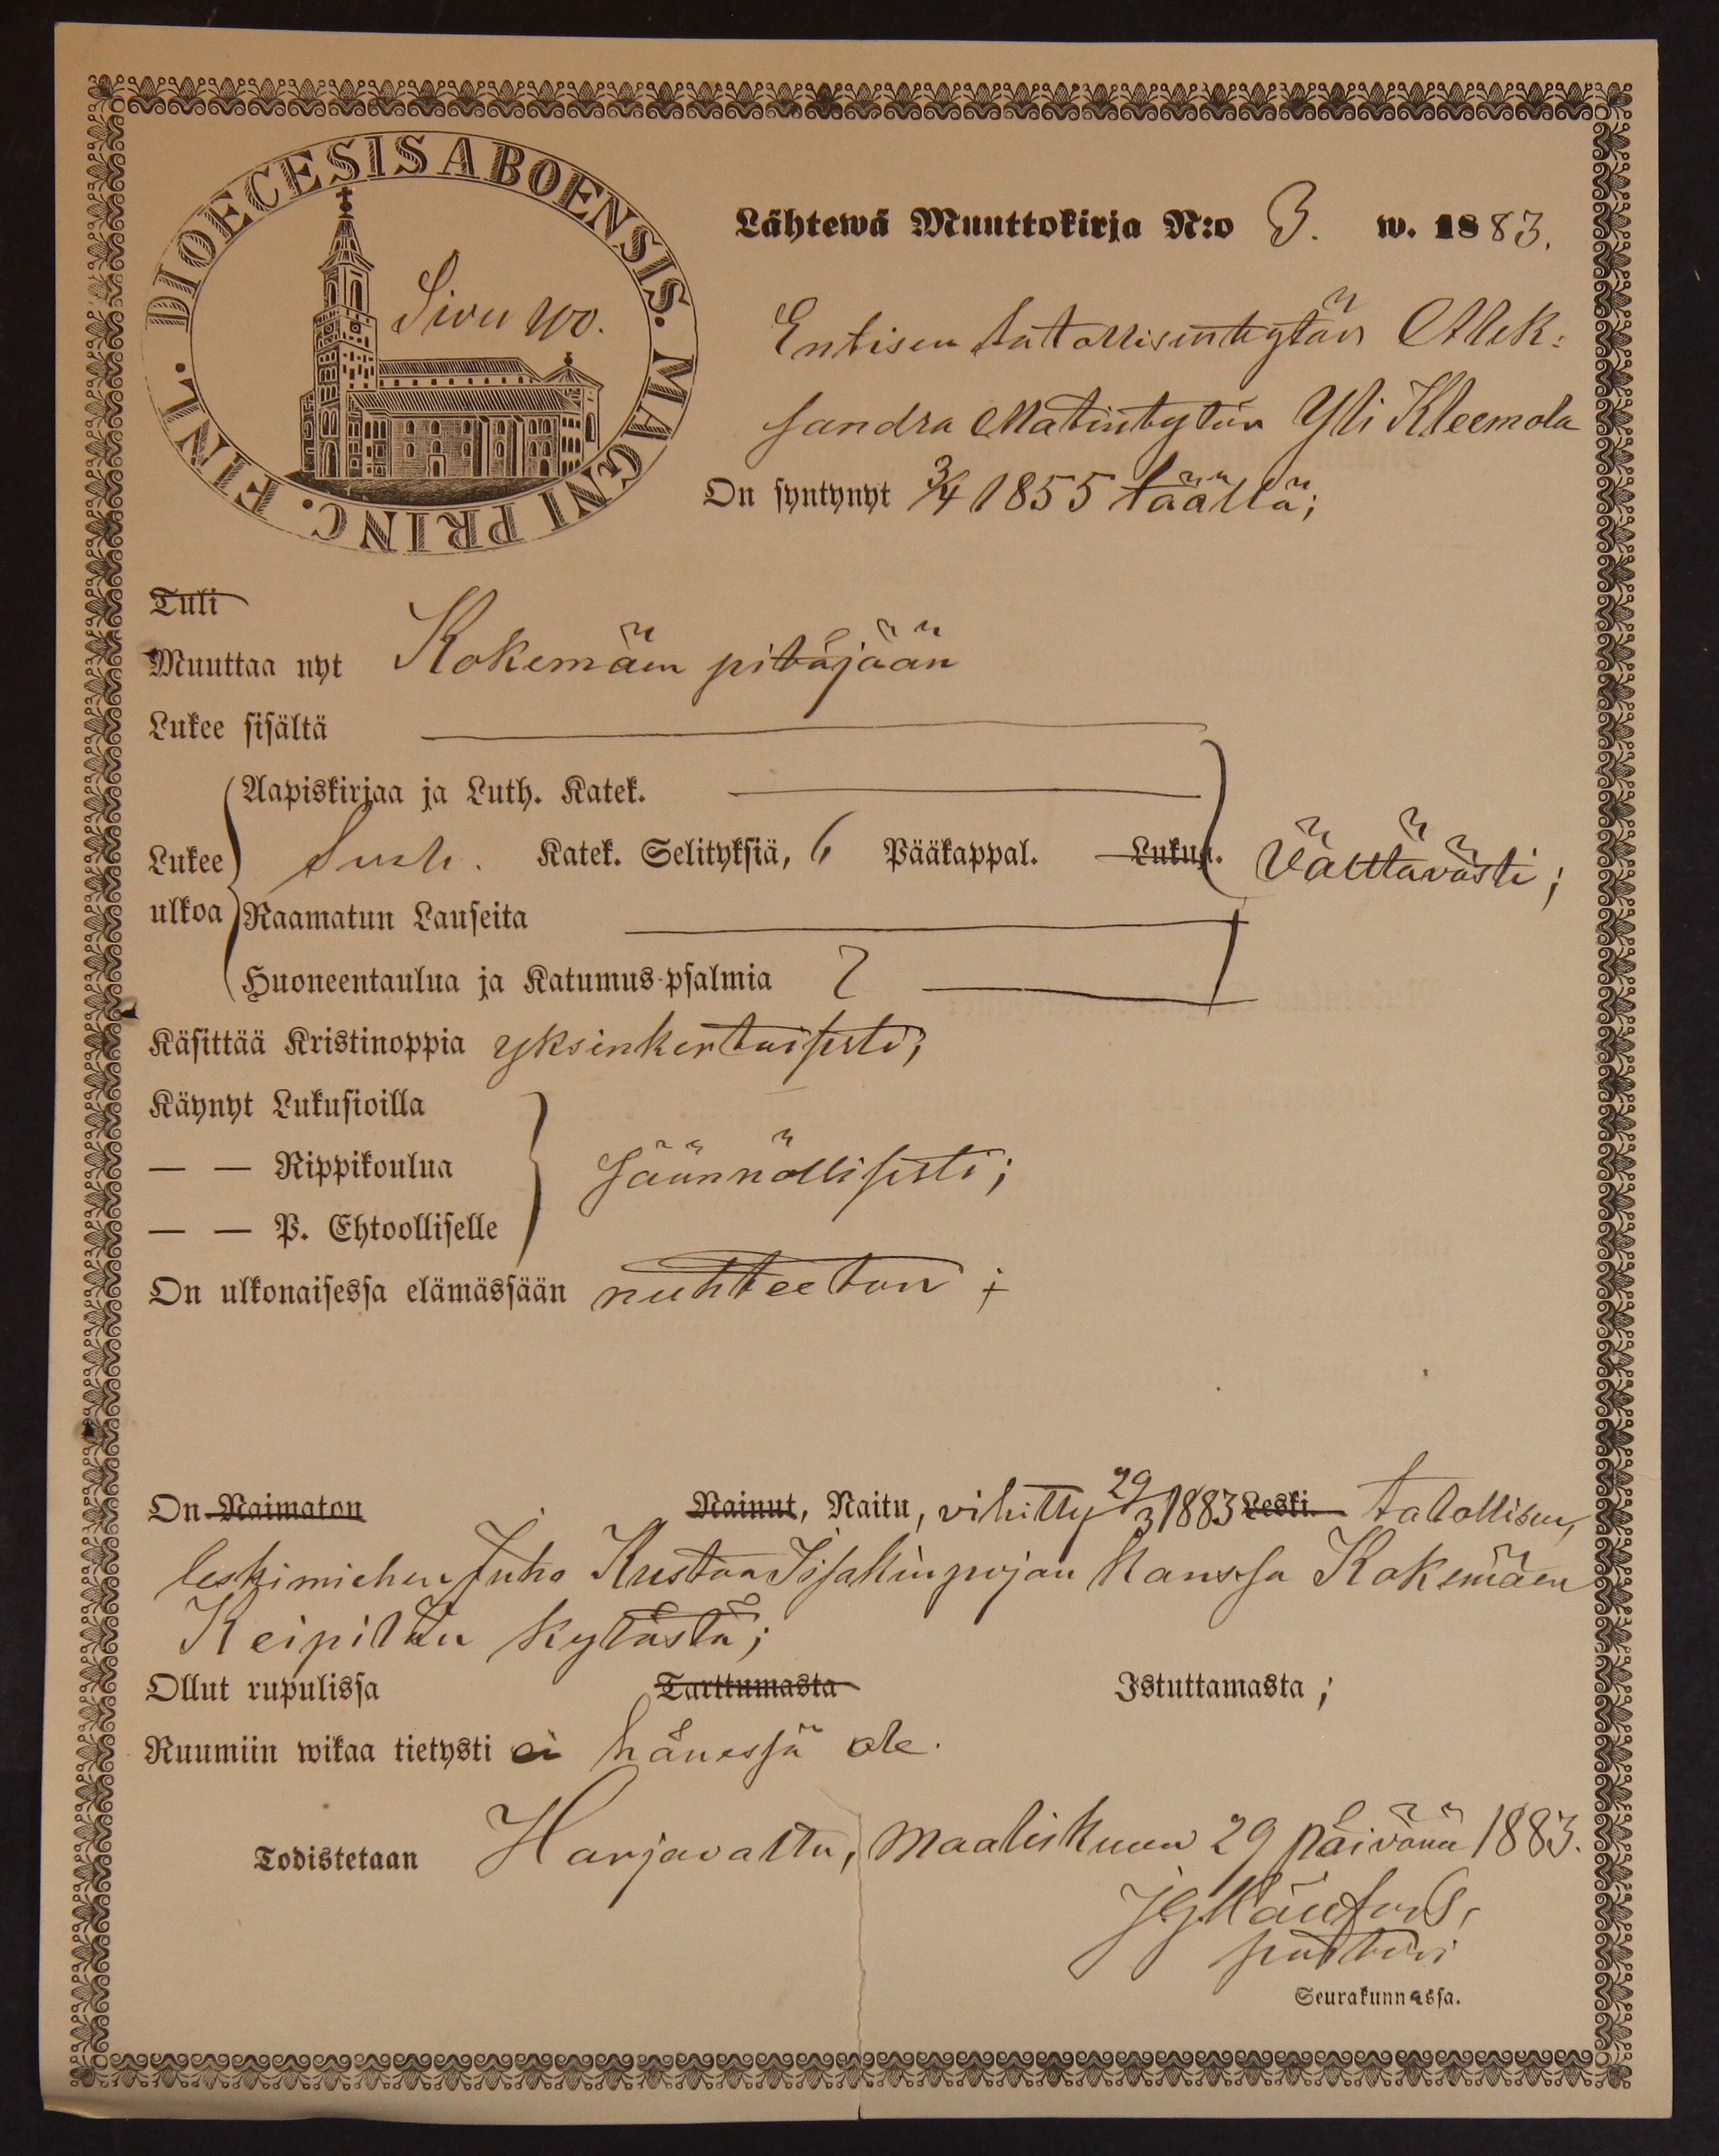 DIOECESIS ABOENSIS. MAGNI PRINC. FINL.
Sivu 100.
Lähtewä Muuttokirja N:o 3. w. 1883.
Entisen talollisentytär Alek-
sandra Matintytär Yli Kleemola
On syntynyt 3/4 1855 täällä;
Tuli
Muuttaa nyt Kokemäen pitäjään
Lukee sisältä
Aapiskirjaa ja Luth. Katek.
Lukee ulkoa
Katek. Selityksiä, 6 Pääkappal. Lukua. Välttävästi;
Raamatun Lauseita
Huoneentaulua ja Katumus-psalmia 2
Käsittää Kristinoppia yksinkertaisesti;
Käynyt Lukusioilla
— — Rippikoulua säännöllisesti;
— — P. Ehtoolliselle
On ulkonaisessa elämässään nuhteeton;
On Naimaton Nainut, Naitu, vihitty 29/3 1883 Leski. talollisen,
leskimiehen Juho Kustaa Iisakinpojan kanssa Kokemäen
Keipilän kylästä;
Ollut rupulissa Tarttumasta Istuttamasta;
Ruumiin wikaa tietysti ei hänessä ole.
Todistetaan Harjavalta, Maaliskuun 29 päivänä 1883.
pastori
Seurakunnassa.